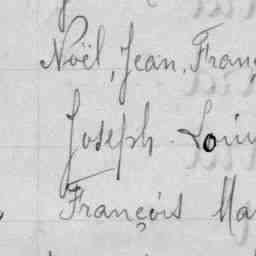 Noël, Jean, Franç
Joseph. Loui
François Ma